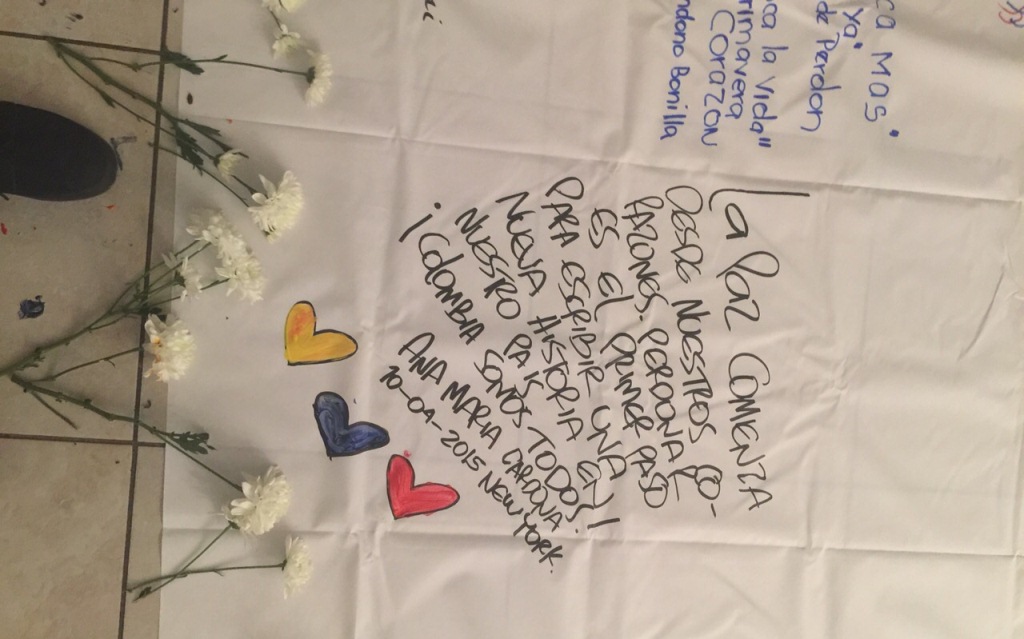 ca Mas"
Ya"
de Perdon
oca la Vida"
rimavera
Corazon
ndano Bonilla
La Paz COMIENZA
DESDE NUESTROS CO-
RAZONES, PERDONAR
ES EL PRIMER PASO
PARA ESCRIBIR UNA
NUEVA HISTORIA EN
NUESTRO PAÍS
¡COLOMBIA SOMOS TODOS!
ANA MARIA CARDONA.
10-04-2015 NEW YORK.